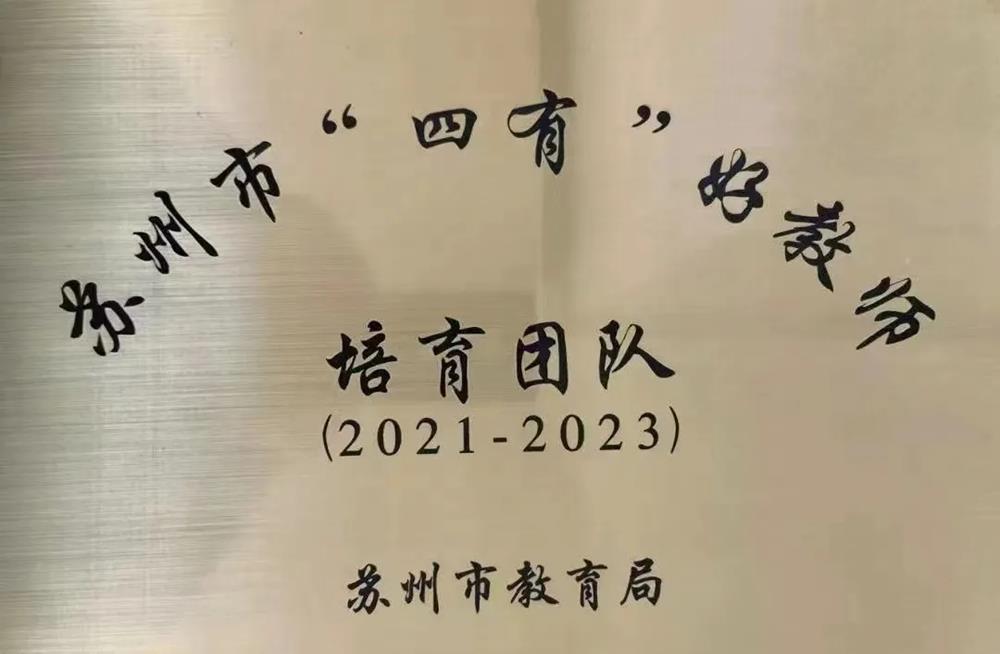 苏州市“四有”好教师
培育团队
(2021-2023)
苏州市教育局